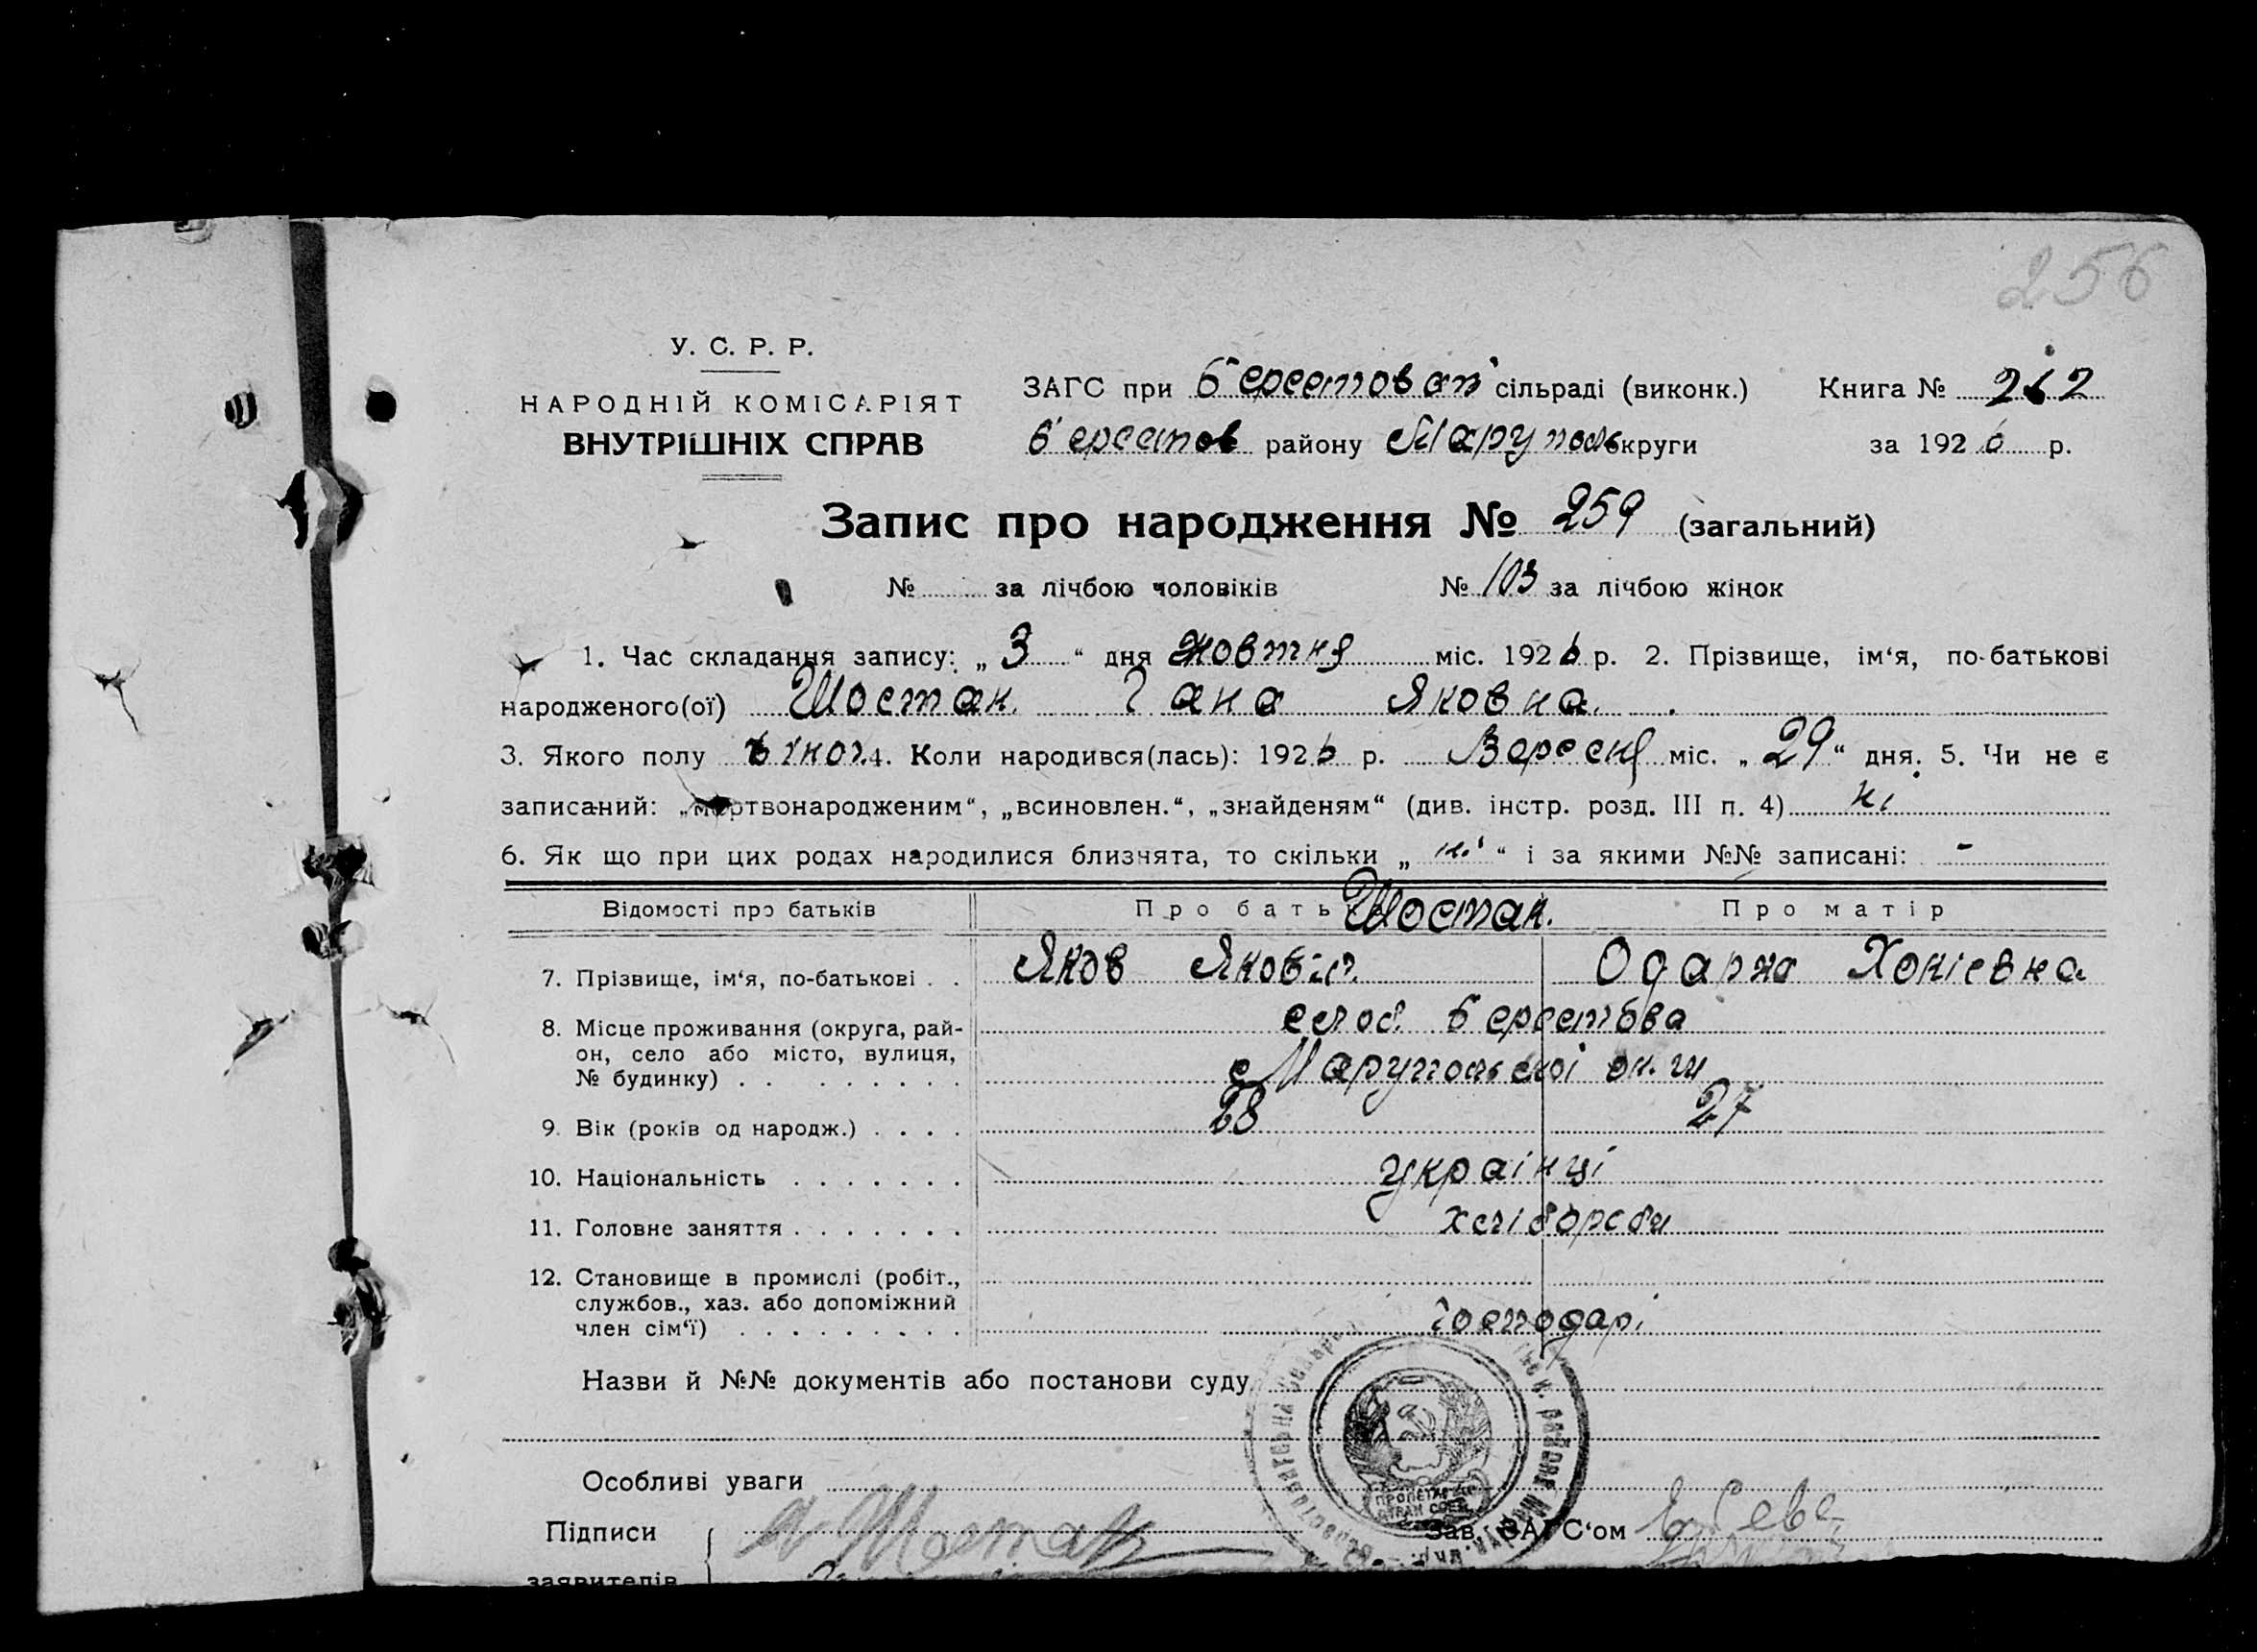 256
У. С. Р. Р.
НАРОДНІЙ КОМІСАРІЯТ
ВНУТРІШНІХ СПРАВ
ЗАГС при Берестоват сільраді (виконк.) Книга № 262
Берестов району Маруполь округи за 1926 р.
Запис про народження № 259 (загальний)
№ за лічбою чоловіків № 103 за лічбою жінок
1. Час складання запису: „ 3 “ дня жовтня міс. 1926 р. 2. Прізвище, ім‘я, по-батькові
народженого(ої) Шостак Гана Яковна.
3. Якого полу жіноч. 4. Коли народився(лась): 1926 р. Вересня міс. „ 29 “ дня. 5. Чи не є
записаний: „мертвонародженим“, „всиновлен.“, „знайденям“ (див. інстр. розд. III п. 4) ні
6. Як що при цих родах народилися близнята, то скільки „ ні “ і за якими №№ записані: -
Відомості про батьків Про батька Шостак. Про матір
7. Прізвище, ім‘я, по-батькові . . Яков Яковіч. Одарка Хокіевна
8. Місце проживання (округа, рай-
он, село або місто, вулиця,
№ будинку) . . . . . . . . .
слоб. Берестова
Марупольскоі ок-ги
9. Вік (років од народж.) . . . . 28 27
10. Національність . . . . . . . українці
11. Головне заняття . . . . . . . хліборсби
12. Становище в промислі (робіт.,
службов., хаз. або допоміжний
член сім‘ї) . . . . . . . . .
господарі
Назви й №№ документів або постанови суду
Особливі уваги
ПРОЛЕТАРІ
КРАН
Підписи Шостак Зав. ЗАГС‘ом
заявителів